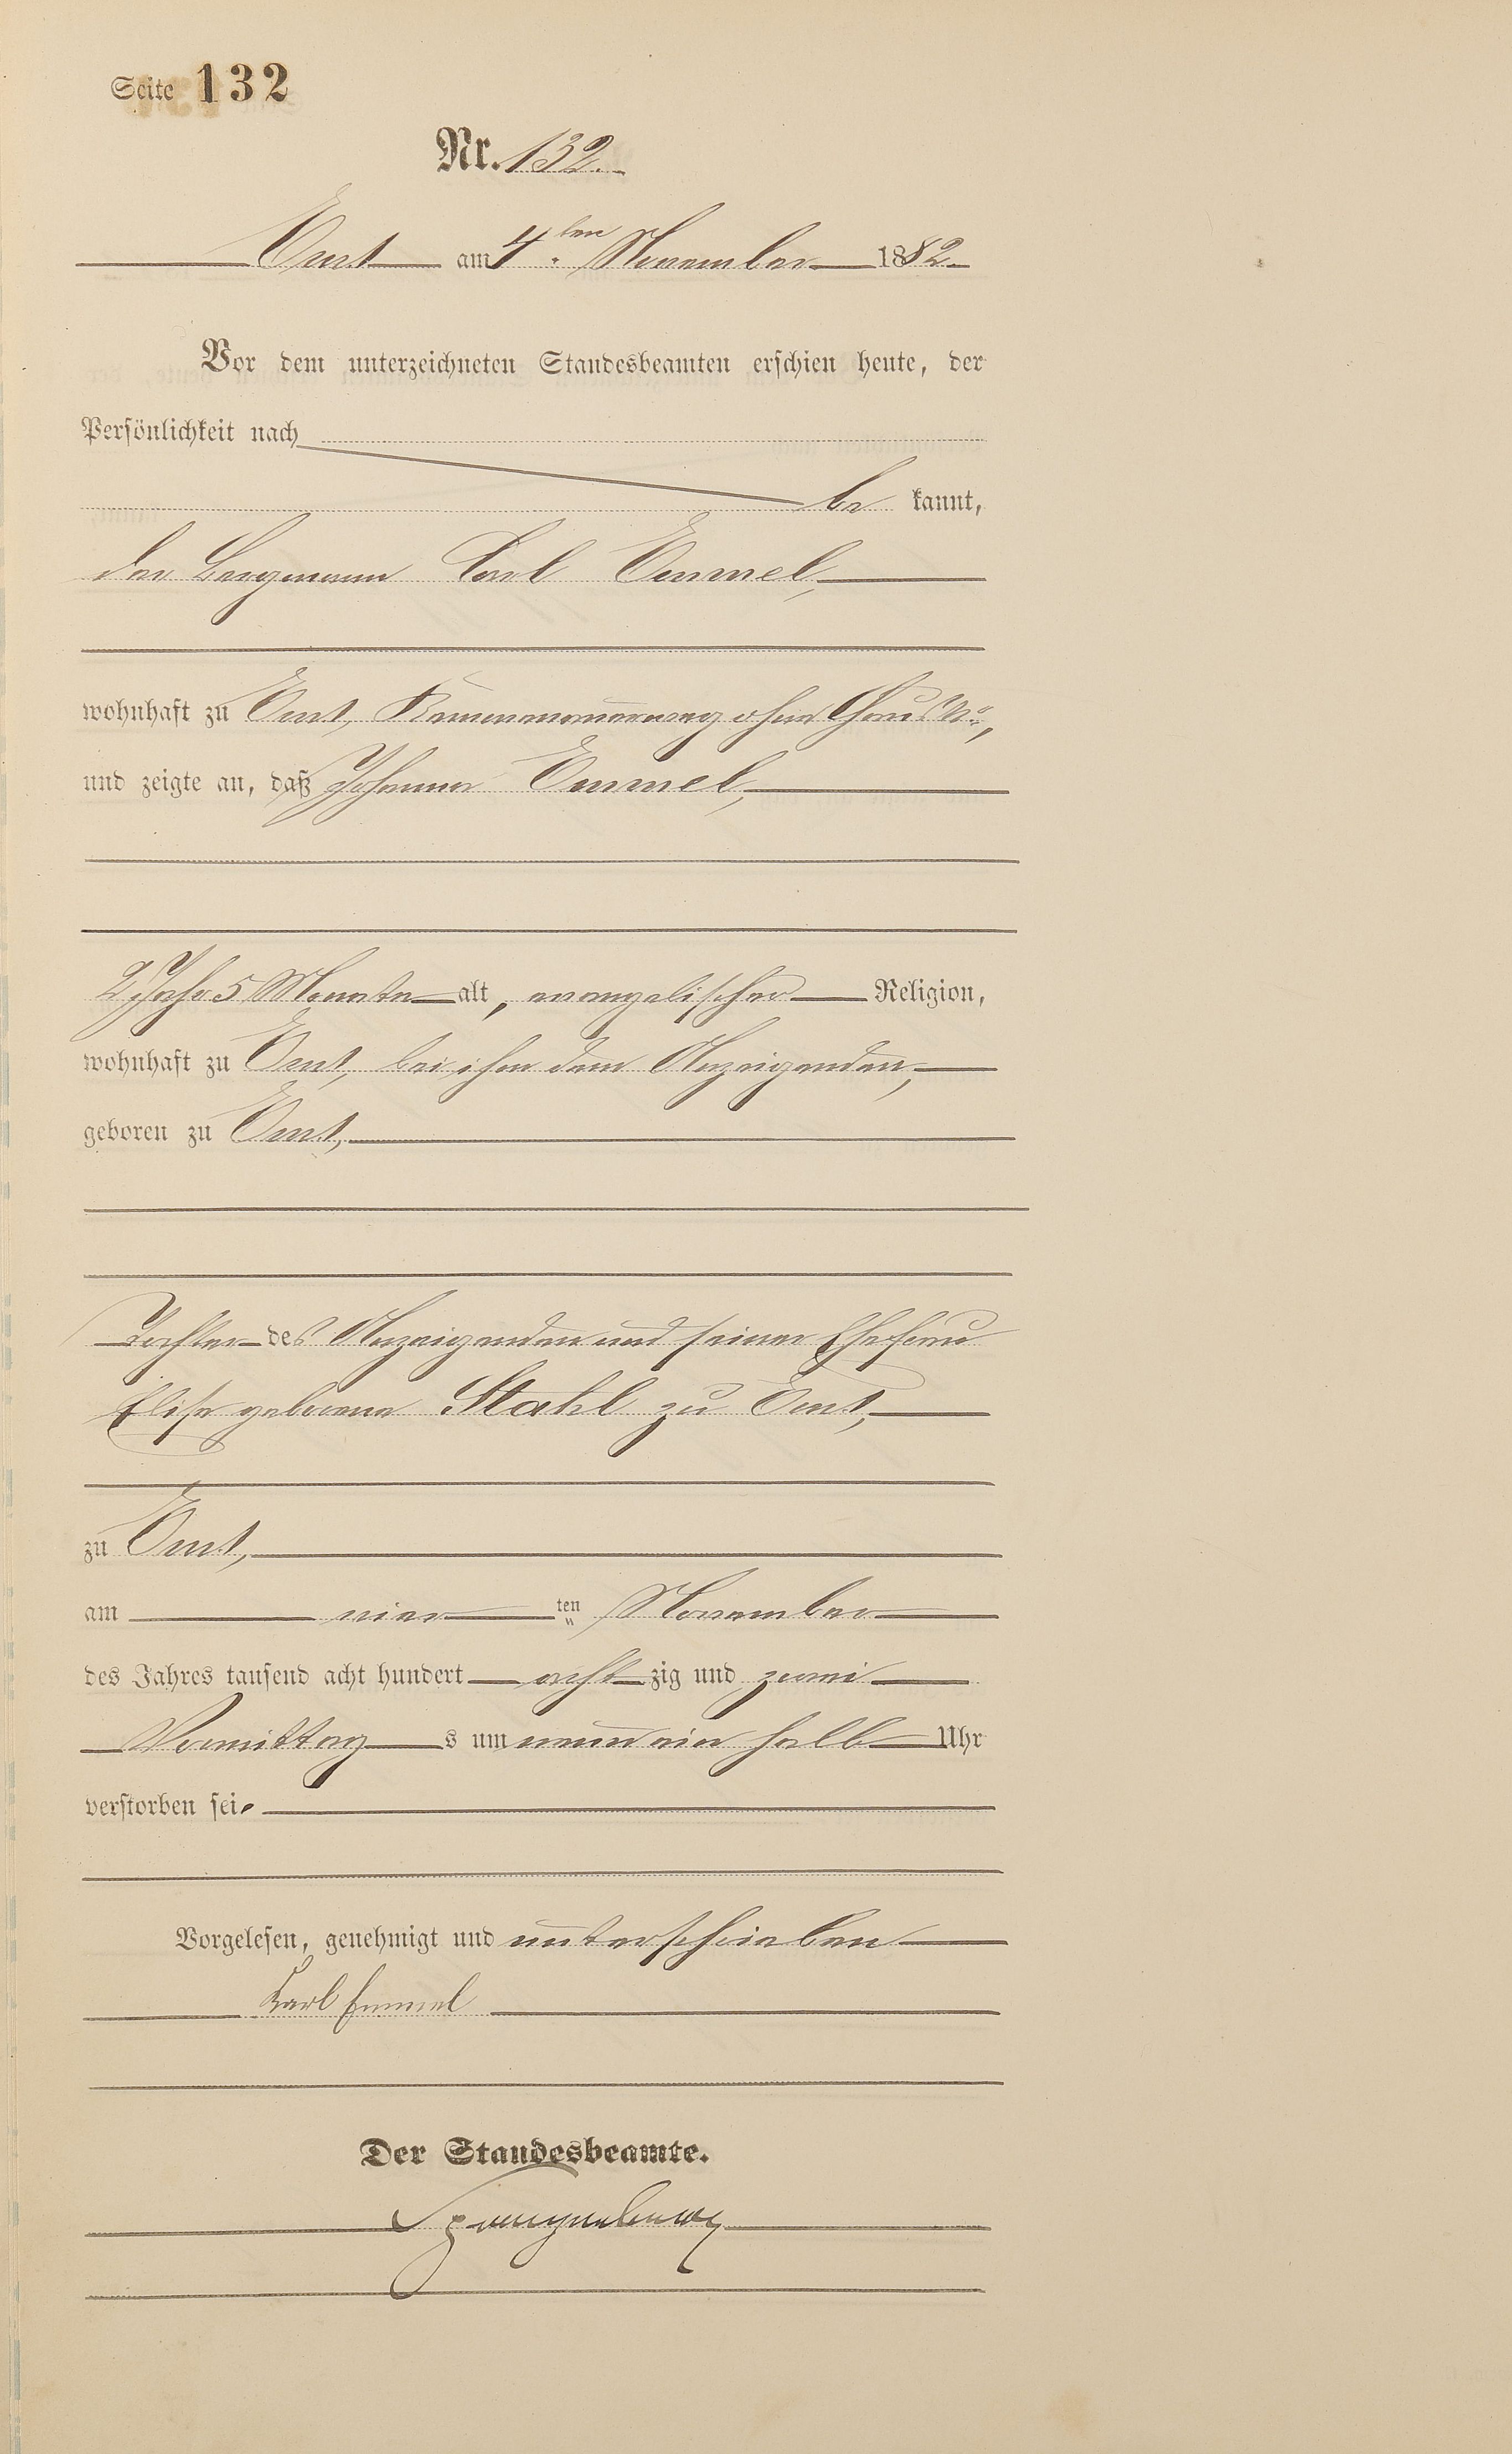 Seite 132
Nr. 132.
Ems am 4. ten November 1882.
Vor dem unterzeichneten Standesbeamten erschien heute, der
Persönlichkeit nach
be kannt,
der Bergmann Carl Emmel,
wohnhaft zu Ems, ohne Haus No,
und zeigte an, daß Johanna Emmel,
2 Jahr 5 Monate alt, evangelischer Religion,
wohnhaft zu Ems, bei ihm dem Anzeigenden,
geboren zu Ems,
Tochter des Anzeigenden und seiner Ehefrau
Elise geborene Stahl zu Ems,
zu Ems,
am vier ten November
des Jahres tausend acht hundert acht zig und zwei
Vormittag s um neun ein halb Uhr
verstorben sei.
Vorgelesen, genehmigt und unterschrieben
Karl Emmel
Der Standesbeamte.
Spangenberg